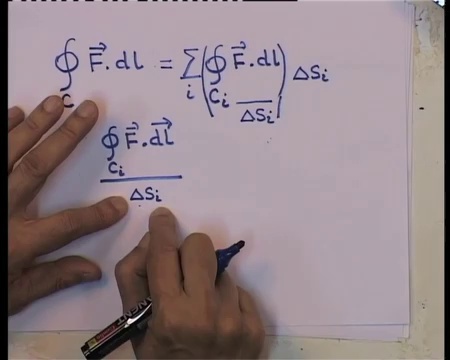 ∮_C F⃗.dl = Σ_i (∮_{C_i} F⃗.dl / ΔS_i) ΔS_i
∮_{C_i} F⃗.dl⃗
ΔS_i